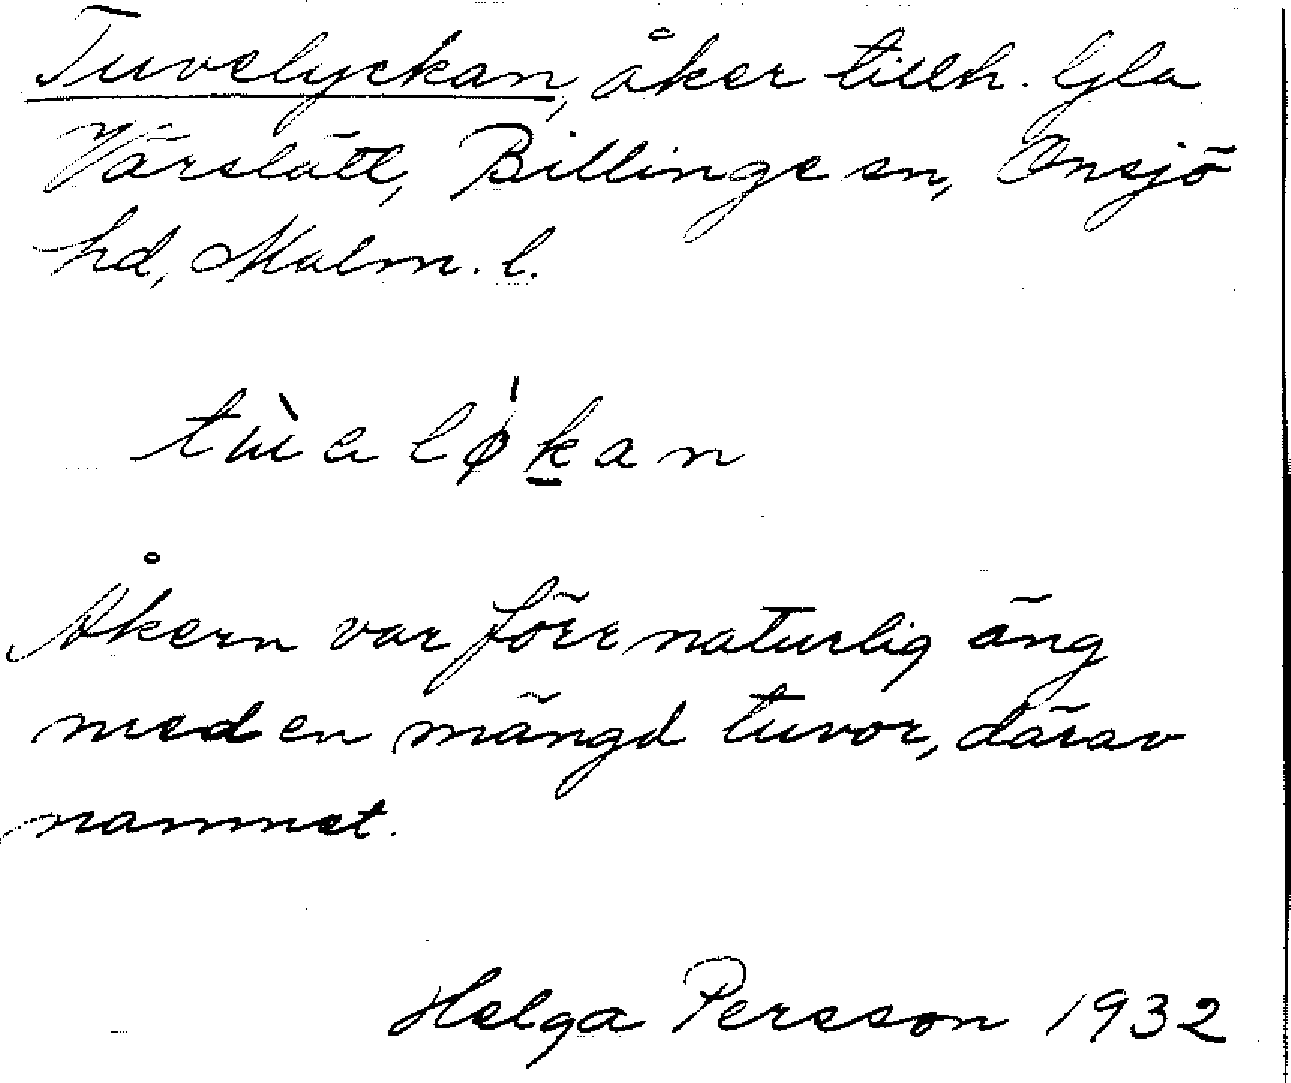 Tuvelyckan, åker tillh. Gla
Värslätt, Billinge sn, Onsjö
hd, Malm. l.
Åkern var förr naturlig äng
med en mängd tuvor, därav
namnet.
Helga Persson 1932